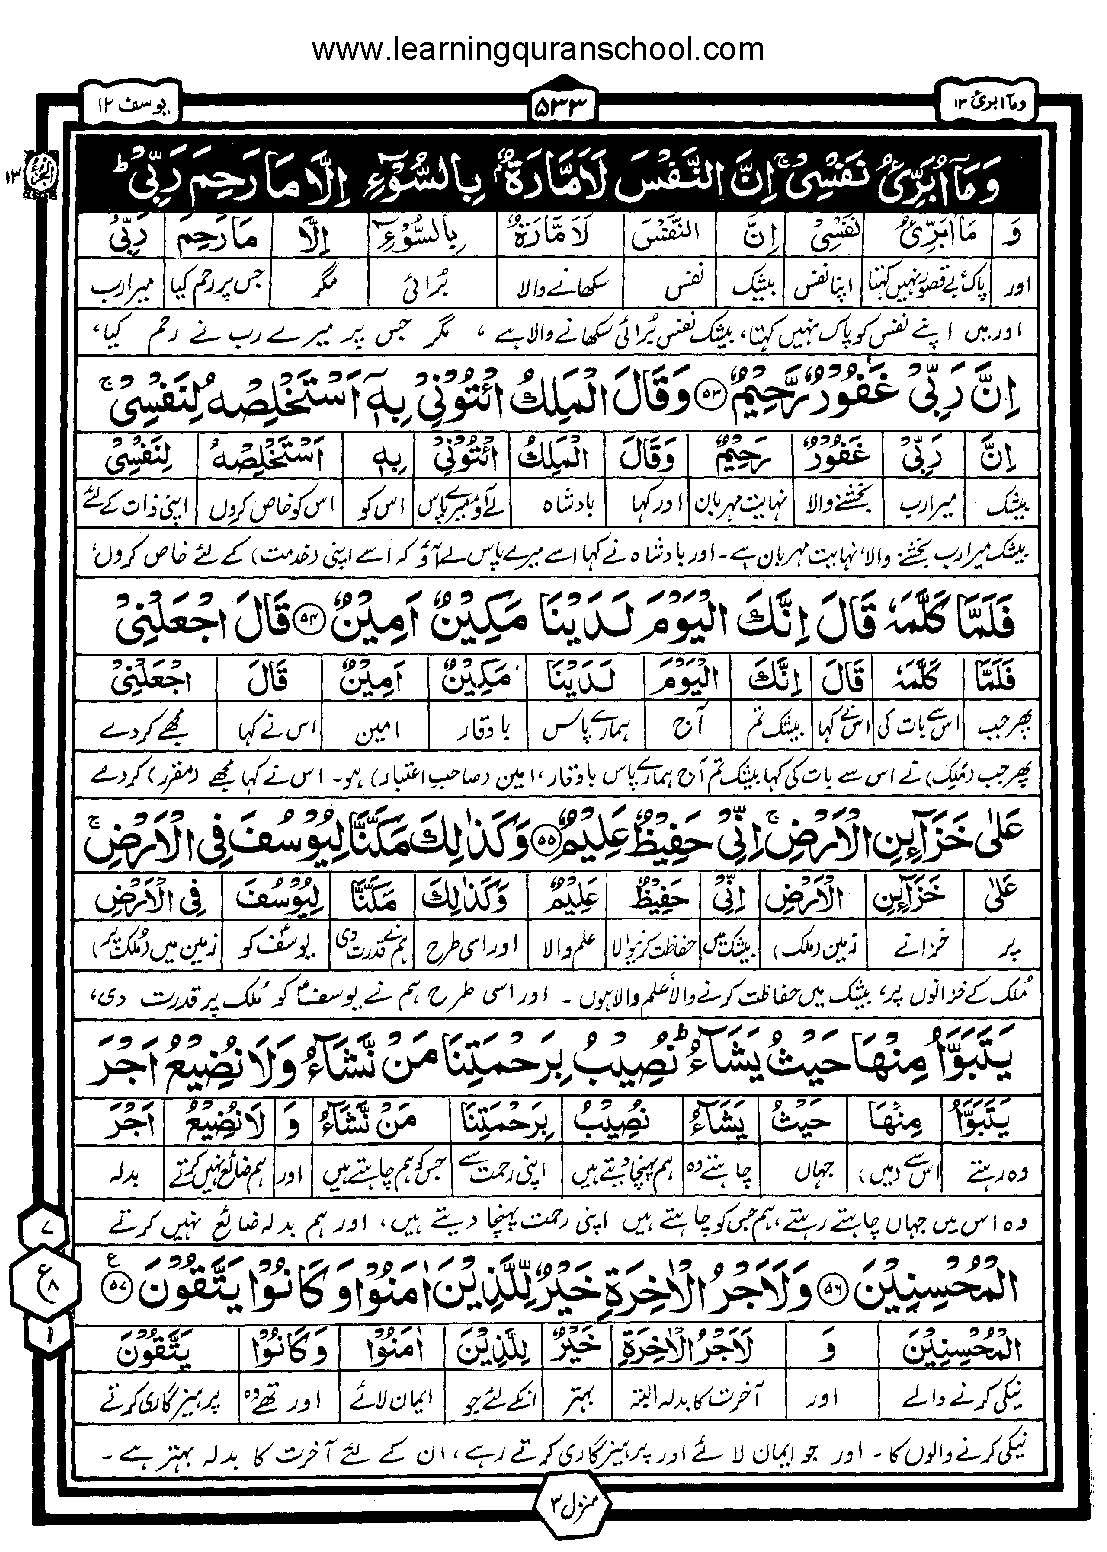 www.learningquranschool.com
وما ابرئ ١٣
۵۳۳
يوسف ١٢
١٣
وَمَآ اُبَرِّئُ نَفْسِىْ ۚ اِنَّ النَّفْسَ لَاَمَّارَةٌۢ بِالسُّوْٓءِ اِلَّا مَا رَحِمَ رَبِّىْ ؕ
وَ مَآ اُبَرِّئُ نَفْسِىْ اِنَّ النَّفْسَ لَاَمَّارَةٌۢ بِالسُّوْٓءِ اِلَّا مَا رَحِمَ رَبِّىْ
اور پاک بے قصور نہیں کہتا اپنا نفس بیشک نفس سکھانے والا بُرائی مگر جس پر رحم کیا میرا رب
اور میں اپنے نفس کو پاک نہیں کہتا، بیشک نفس بُرائی سکھانے والا ہے ، مگر جس پر میرے رب نے رحم کیا،
اِنَّ رَبِّىْ غَفُوْرٌ رَّحِيْمٌ ۵۳ وَقَالَ الْمَلِكُ ائْتُوْنِىْ بِهٖٓ اَسْتَخْلِصْهُ لِنَفْسِىْ ۚ
اِنَّ رَبِّىْ غَفُوْرٌ رَحِيْمٌ وَقَالَ الْمَلِكُ ائْتُوْنِىْ بِهٖٓ اَسْتَخْلِصْهُ لِنَفْسِىْ
بیشک میرا رب بخشنے والا نہایت مہربان اور کہا بادشاہ لے آؤ میرے پاس اس کو اس کو خاص کروں اپنی ذات کے لئے
بیشک میرا رب بخشنے والا، نہایت مہربان ہے۔ اور بادشاہ نے کہا اسے میرے پاس لے آؤ کہ اسے اپنی (خدمت) کے لئے خاص کروں
فَلَمَّا كَلَّمَهٗ قَالَ اِنَّكَ الْيَوْمَ لَدَيْنَا مَكِيْنٌ اَمِيْنٌ ۵۴ قَالَ اجْعَلْنِىْ
فَلَمَّا كَلَّمَهٗ قَالَ اِنَّكَ الْيَوْمَ لَدَيْنَا مَكِيْنٌ اَمِيْنٌ قَالَ اجْعَلْنِىْ
پھر جب اس سے بات کی اس نے کہا بیشک تم آج ہمارے پاس باوقار امین اس نے کہا مجھے کر دے
پھر جب (ملک) نے اس سے بات کی کہا بیشک تم آج ہمارے پاس باوقار، امین (صاحبِ اعتبار) ہو۔ اس نے کہا مجھے (مقرر) کر دے
عَلٰى خَزَآئِنِ الْاَرْضِ ۚ اِنِّىْ حَفِيْظٌ عَلِيْمٌ ۵۵ وَكَذٰلِكَ مَكَّنَّا لِيُوْسُفَ فِى الْاَرْضِ ۚ
عَلٰى خَزَآئِنِ الْاَرْضِ اِنِّىْ حَفِيْظٌ عَلِيْمٌ وَكَذٰلِكَ مَكَّنَّا لِيُوْسُفَ فِى الْاَرْضِ
پر خزانے زمین (ملک) بیشک میں حفاظت کرنیوالا علم والا اور اسی طرح ہم نے قدرت دی یوسف کو زمین میں (ملک پر)
مُلک کے خزانوں پر، بیشک میں حفاظت کرنے والا علم والا ہوں ۔ اور اسی طرح ہم نے یوسفؑ کو مُلک پر قدرت دی،
يَتَبَوَّاُ مِنْهَا حَيْثُ يَشَآءُ ؕ نُصِيْبُ بِرَحْمَتِنَا مَنْ نَّشَآءُ وَلَا نُضِيْعُ اَجْرَ
يَتَبَوَّاُ مِنْهَا حَيْثُ يَشَآءُ نُصِيْبُ بِرَحْمَتِنَا مَنْ نَّشَآءُ وَ لَا نُضِيْعُ اَجْرَ
وہ رہتے اس سے (میں) جہاں چاہتے وہ ہم پہنچا دیتے ہیں اپنی رحمت سے جس کو ہم چاہتے ہیں اور ہم ضائع نہیں کرتے بدلہ
وہ اس میں جہاں چاہتے رہتے، ہم جس کو چاہتے ہیں اپنی رحمت پہنچا دیتے ہیں، اور ہم بدلہ ضائع نہیں کرتے
٧
ع
٨
١
الْمُحْسِنِيْنَ ۵۶ وَلَاَجْرُ الْاٰخِرَةِ خَيْرٌ لِّلَّذِيْنَ اٰمَنُوْا وَكَانُوْا يَتَّقُوْنَ ۵۷ ع
الْمُحْسِنِيْنَ وَ لَاَجْرُ الْاٰخِرَةِ خَيْرٌ لِّلَّذِيْنَ اٰمَنُوْا وَكَانُوْا يَتَّقُوْنَ
نیکی کرنے والے اور آخرت کا بدلہ البتہ بہتر انکے لئے جو ایمان لائے اور تھے وہ پرہیزگاری کرتے
نیکی کرنے والوں کا ۔ اور جو ایمان لائے اور پرہیزگاری کرتے رہے، ان کے لئے آخرت کا بدلہ بہتر ہے ۔
منزل ٣